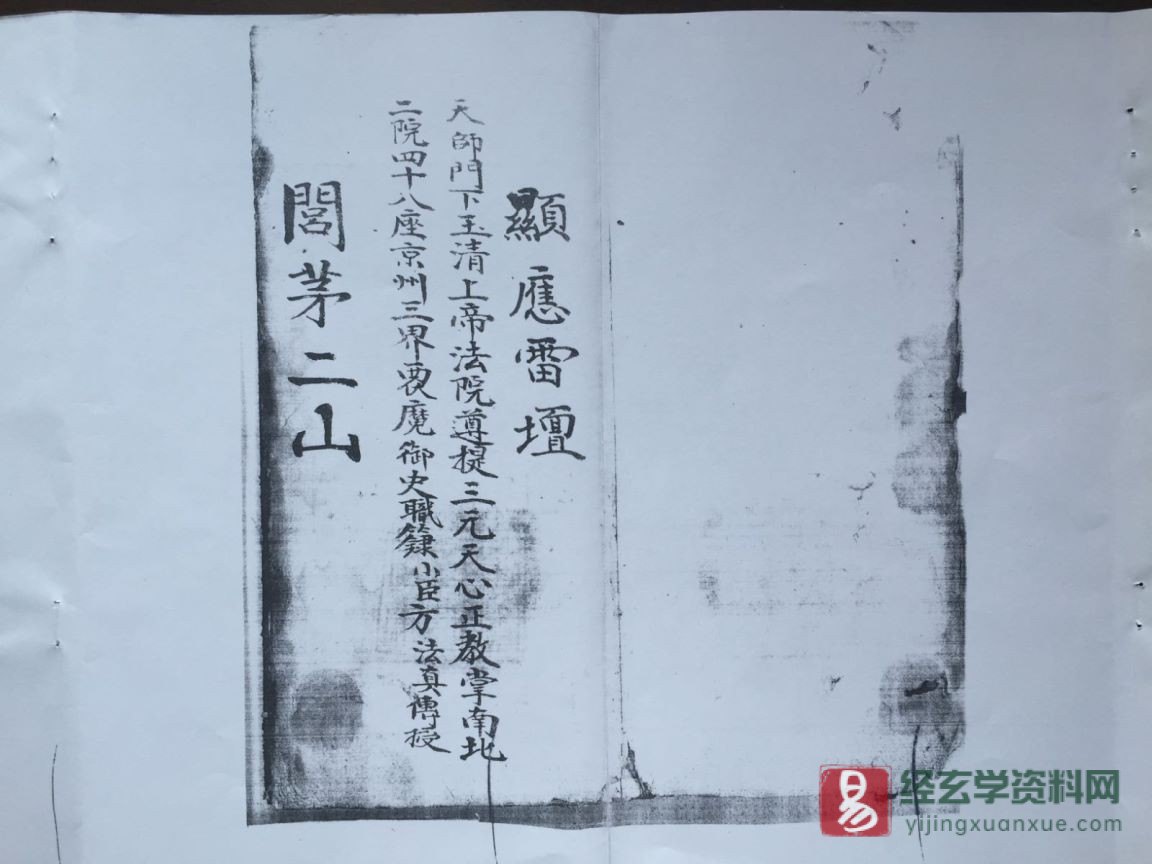 顯應雷壇
天師門下玉清上帝法院遵提三元天心正教掌南北
二院四十八座京州三界要魔御史職籙小臣方法真傳授
閭茅二山
易
经玄学资料网
yijingxuanxue.com